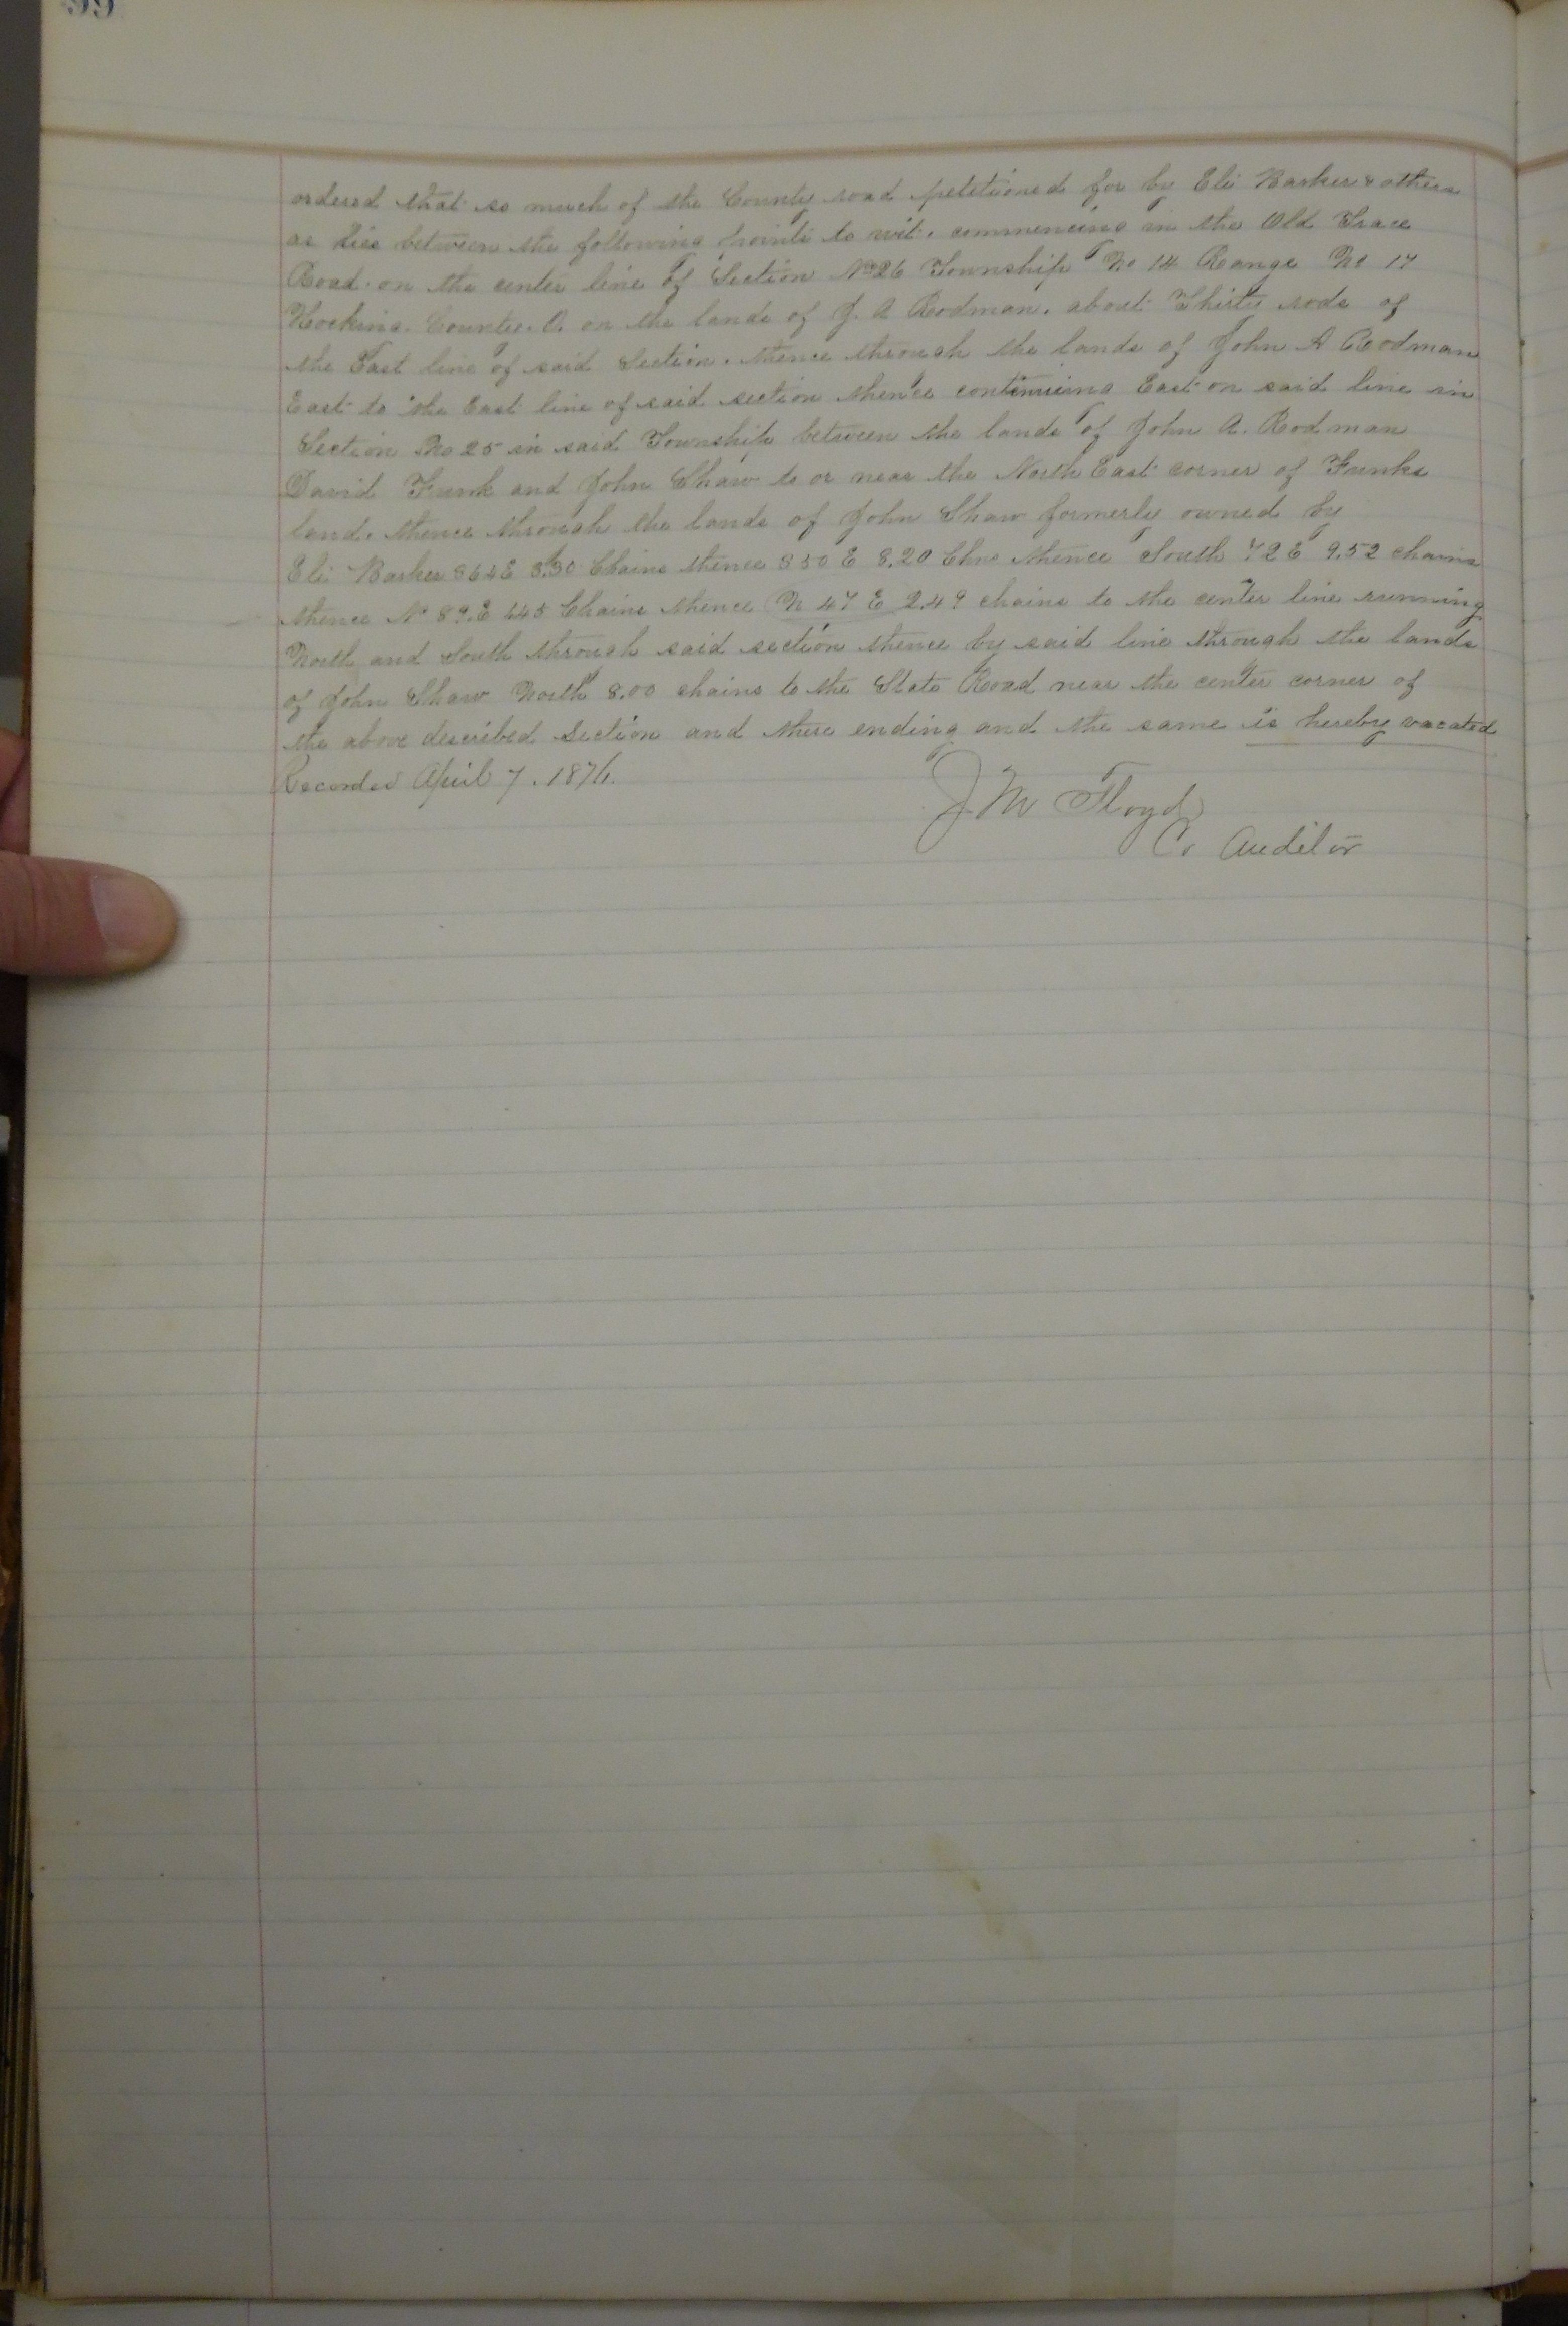 99
ordered that so much of the County road petitioned for by Eli Barker & others
as lies between the following points to wit. commencing in the Old Trace
Road on the center line of Section No 26 Township No 14 Range No 17
Hocking County. O. on the lands of J. A Rodman. about Thirty rods of
the East line of said Section. thence through the lands of John A Rodman
East to the East line of said section thence continuing East on said line in
Section No 25 in said Township between the lands of John A. Rodman
David Funk and John Shaw to or near the North East corner of Funks
land. thence through the lands of John Shaw formerly owned by
Eli Barker S 64 E 8.30 Chains thence S 50 E 8.20 Chns thence South 72 E 9.52 chains
thence N 89. E 445 Chains thence N 47 E 2.49 chains to the center line running
North and South through said section thence by said line through the lands
of John Shaw North 8.00 chains to the State Road near the center corner of
the above described Section and there ending and the same is hereby vacated
Recorded April 7. 1876.
J M Floyd
Co Auditor